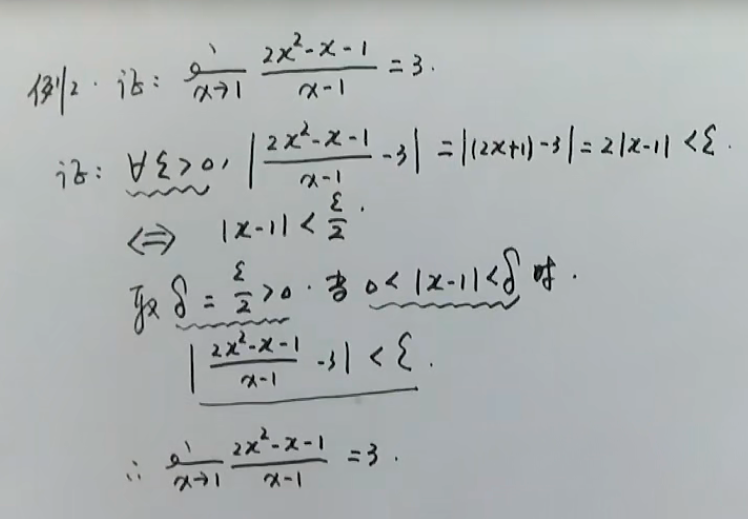 例2. 证: lim_{x→1} (2x²-x-1)/(x-1) = 3.
证: ∀ε>0, |(2x²-x-1)/(x-1) -3| = |(2x+1)-3| = 2|x-1| < ε.
⇔ |x-1| < ε/2.
取 δ = ε/2 > 0. 当 0 < |x-1| < δ 时.
|(2x²-x-1)/(x-1) -3| < ε.
∴ lim_{x→1} (2x²-x-1)/(x-1) = 3.